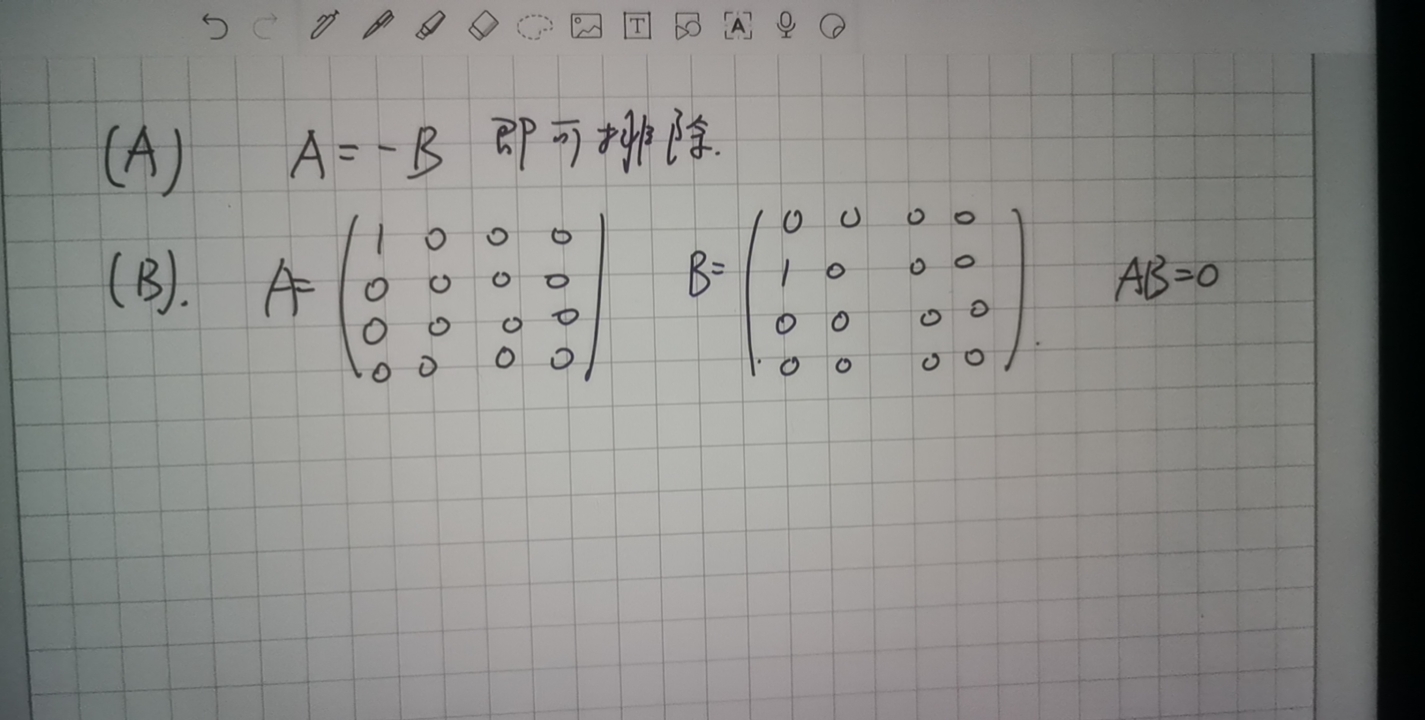 (A) A = -B 即可排除.
(B). A= ( 1 0 0 0 B= ( 0 0 0 0 AB=0
0 0 0 0 1 0 0 0
0 0 0 0 0 0 0 0
0 0 0 0 ) 0 0 0 0 ).